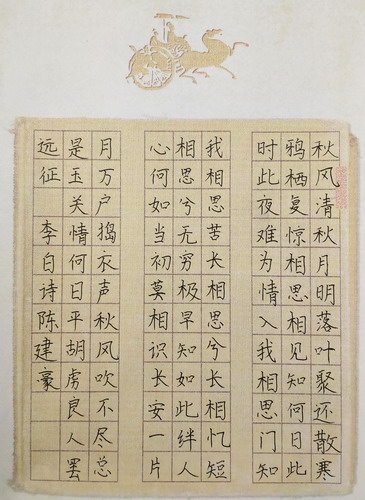 秋风清秋月明落叶聚还散寒
鸦栖复惊相思相见知何日此
时此夜难为情入我相思门知
我相思苦长相思兮长相忆短
相思兮无穷极早知如此绊人
心何如当初莫相识长安一片
月万户捣衣声秋风吹不尽总
是玉关情何日平胡虏良人罢
远征 李白诗陈建豪